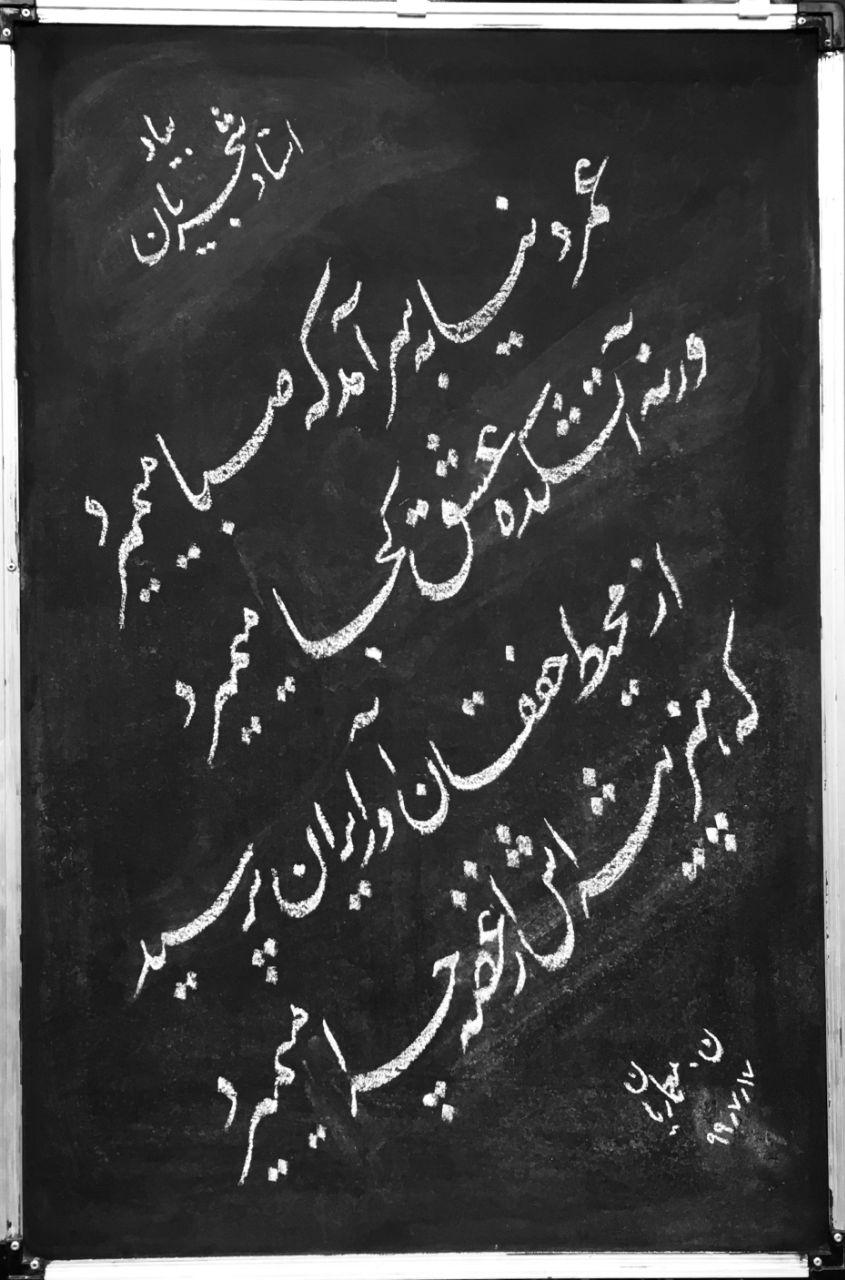 بیاد
استاد شجریان
عمر دنیا به سر آمد که صبا میمیرد
ورنه آتشکده عشق کجا میمیرد
از محیط خفقان آور ایران پرسید
که هنر پیشه اش از غصه چرا میمیرد
ن. معماریان